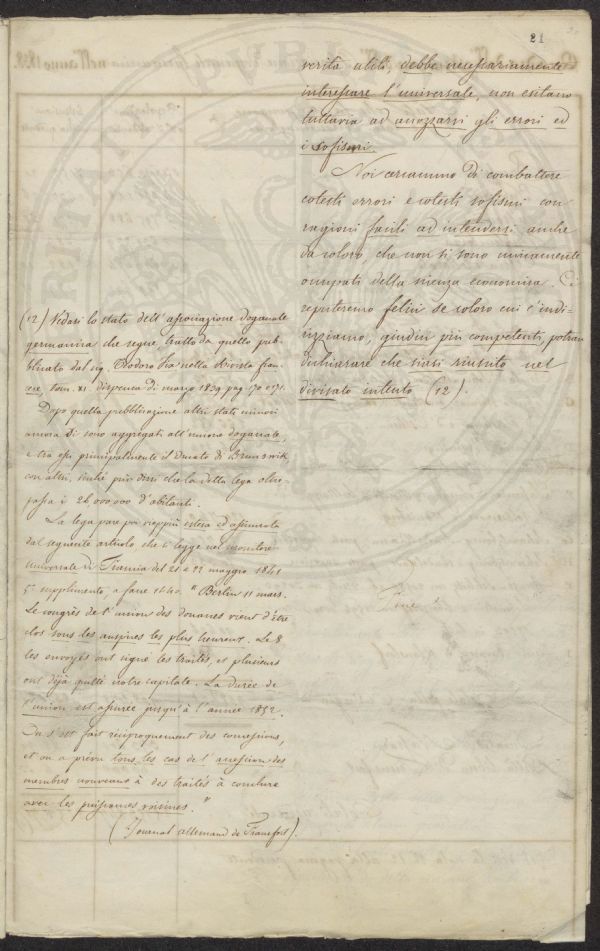 21
verità utili, debbe necessariamente
interessare l'universale, non esitano
tuttavia ad accozzarsi gli errori ed
i sofismi.
Noi cercammo di combattere
cotesti errori e cotesti sofismi con
ragioni facili ad intendersi anche
da coloro, che non si sono unicamente
occupati della scienza economica. Ci
reputeremo felici se coloro cui c'indi-
rizziamo, giudici più competenti, potran
dichiarare che siasi riuscito nel
divisato intento (12).
Fine
(12) Vedasi lo stato dell'associazione doganale
germanica che segue, tratto da quello pub-
blicato dal sig. Teodoro Fix nella Rivista fran-
cese, tom. XI. dispensa di marzo 1839 pag. 170 e 171.
Dopo quella pubblicazione altri stati minori
ancora si sono aggregati all'unione doganale,
e tra essi principalmente il Ducato di Brunswik
con altri, sicchè può dirsi che la detta lega oltre-
passa i 26,000,000 d'abitanti.
La lega pare poi vieppiù estesa ed assicurata
dal seguente articolo che si legge nel monitore
universale di Francia del 21 e 22 maggio 1841
5.º supplimento, a facce 1440. "Berlin 11 mars.
Le congrès de l'union des douanes vient d'être
clos sous les auspices les plus heureux. Le 8
les envoyés ont signé les traités, et plusieurs
ont déjà quitté notre capitale. La durée de
l'union est assurée jusqu'à l'année 1852.
On s'est fait réciproquement des concessions,
et on a prévu tous les cas de l'accession des
membres nouveaux à des traités à conclure
avec les puissances voisines."
(Journal allemand de Francfort).